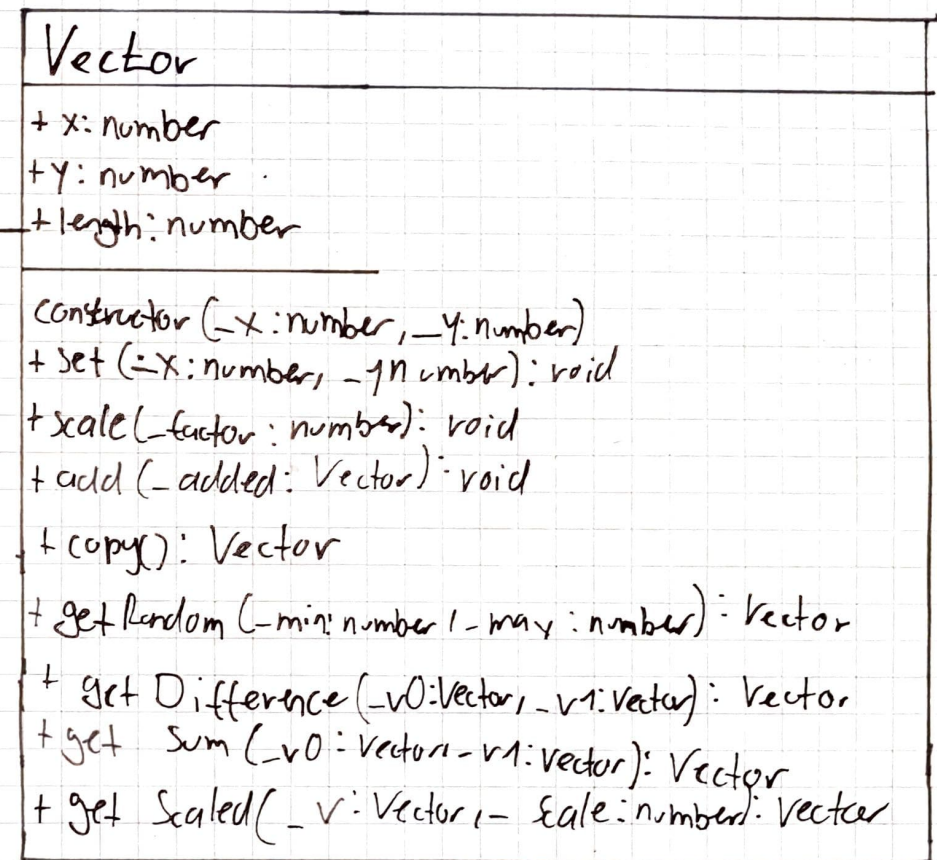 Vector
+ x: number
+ y: number
+ length: number
constructor (_x: number, _y: number)
+ set (_x: number, _y number): void
+ scale (_factor: number): void
+ add (_added: Vector): void
+ copy(): Vector
+ getRandom (_min: number, _max: number): Vector
+ get Difference (_v0: Vector, _v1: Vector): Vector
+ get Sum (_v0: Vector, _v1: Vector): Vector
+ get Scaled (_v: Vector, _scale: number): Vector